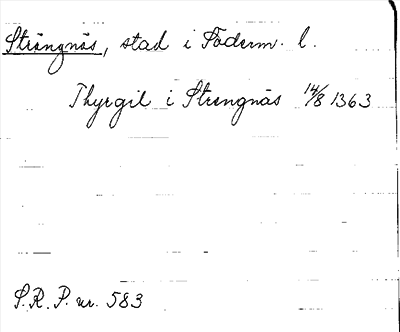 Strängnäs, stad i Söderm. l.
Thyrgil i Strengnäs 14/8 1363
S.R.P. nr. 583